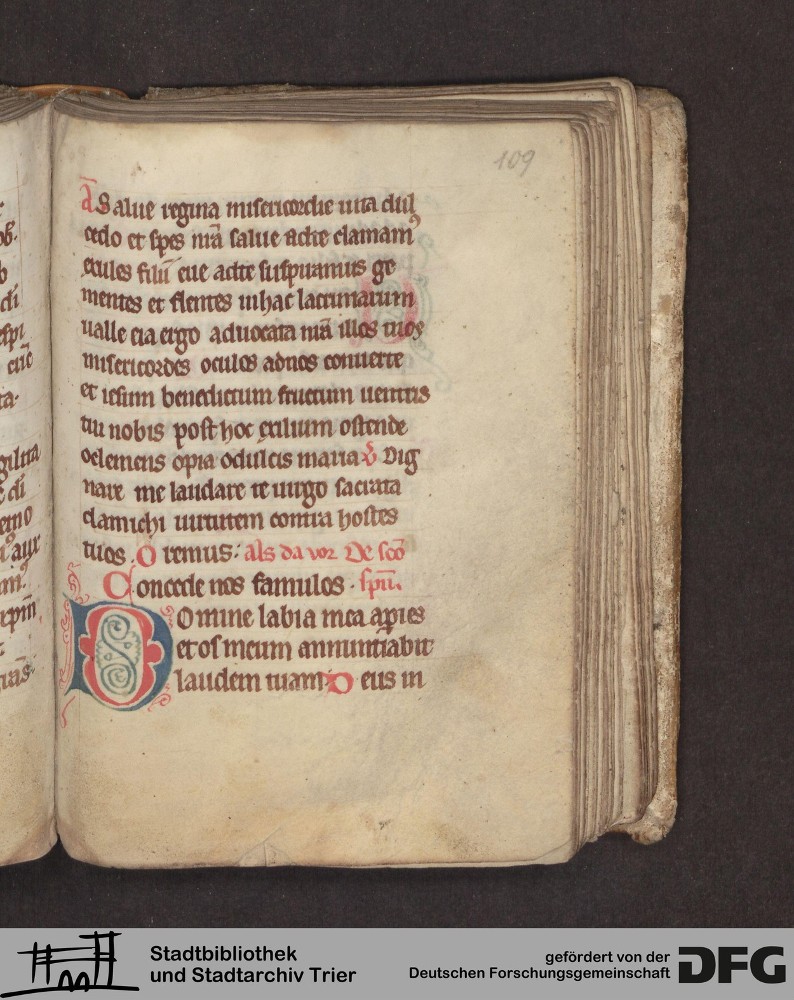 109
Ā Salue regina misericordie uita dul
cedo et spes nr̄a salue adte clamam᷒
exules filii eue adte suspiramus ge
mentes et flentes inhac lacrimarum
ualle eia ergo aduocata nr̄a illos tuos
misericordes oculos adnos conuerte
et iesum benedictum fructum uentris
tui nobis post hoc exilium ostende
oclemens opia odulcis maria V Dig
nare me laudare te uirgo sacrata
damichi uirtutem contra hostes
tuos. Oremus: als da vor De sc̄o
Concede nos famulos. spū.
Domine labia mea aperies
et os meum annuntiabit
laudem tuam: Deus in
Stadtbibliothek
und Stadtarchiv Trier
gefördert von der
Deutschen Forschungsgemeinschaft
DFG